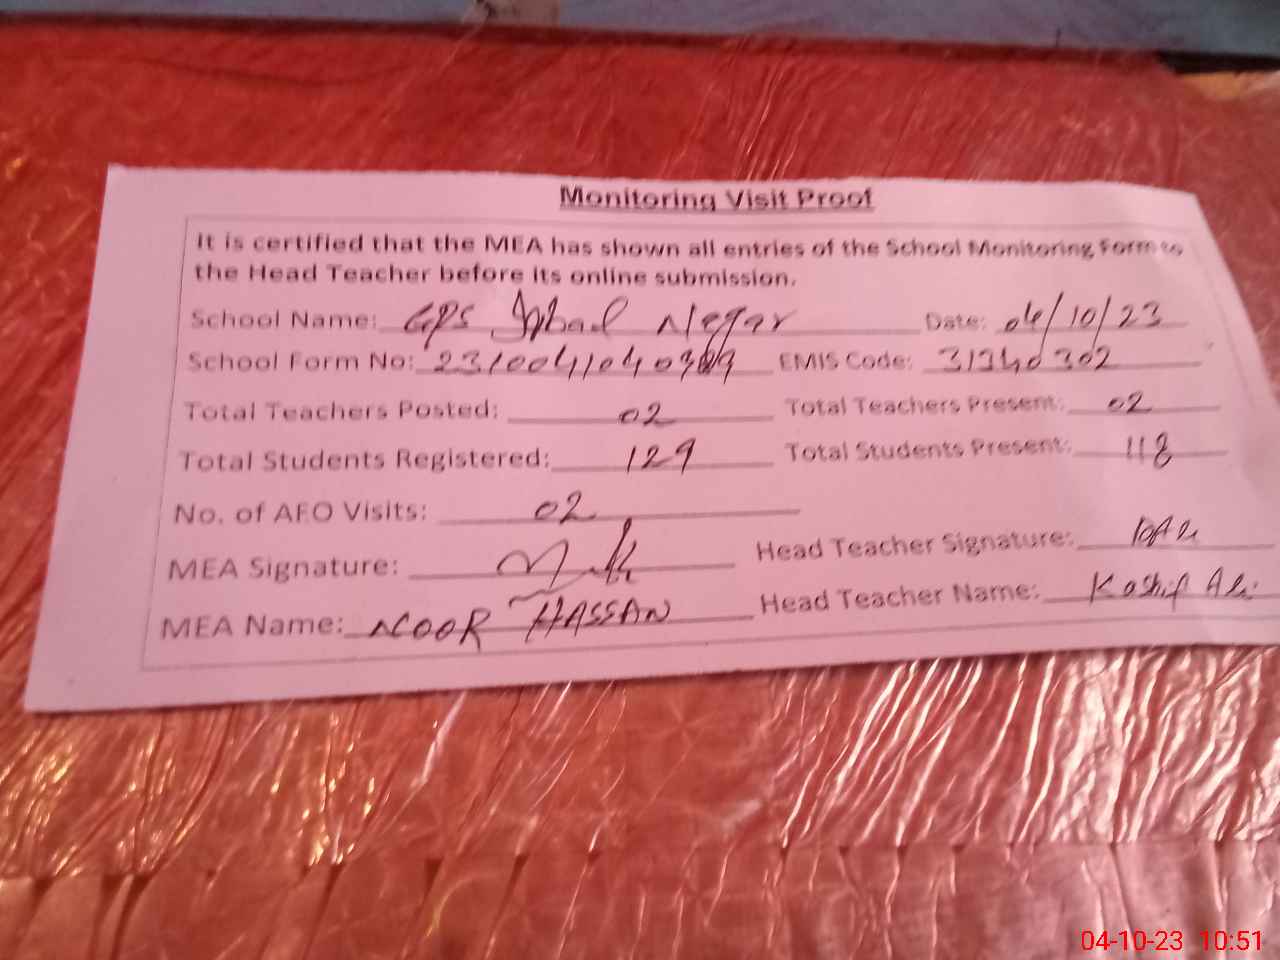 Monitoring Visit Proof
It is certified that the MEA has shown all entries of the School Monitoring Form to
the Head Teacher before its online submission.
School Name: GPS Iqbal Negar Date: 04/10/23
School Form No: EMIS Code: 31340302
Total Teachers Posted: 02 Total Teachers Present: 02
Total Students Registered: 129 Total Students Present: 118
No. of AEO Visits: 02
MEA Signature: Head Teacher Signature:
MEA Name: NOOR HASSAN Head Teacher Name: Kashif Ali
04-10-23 10:51